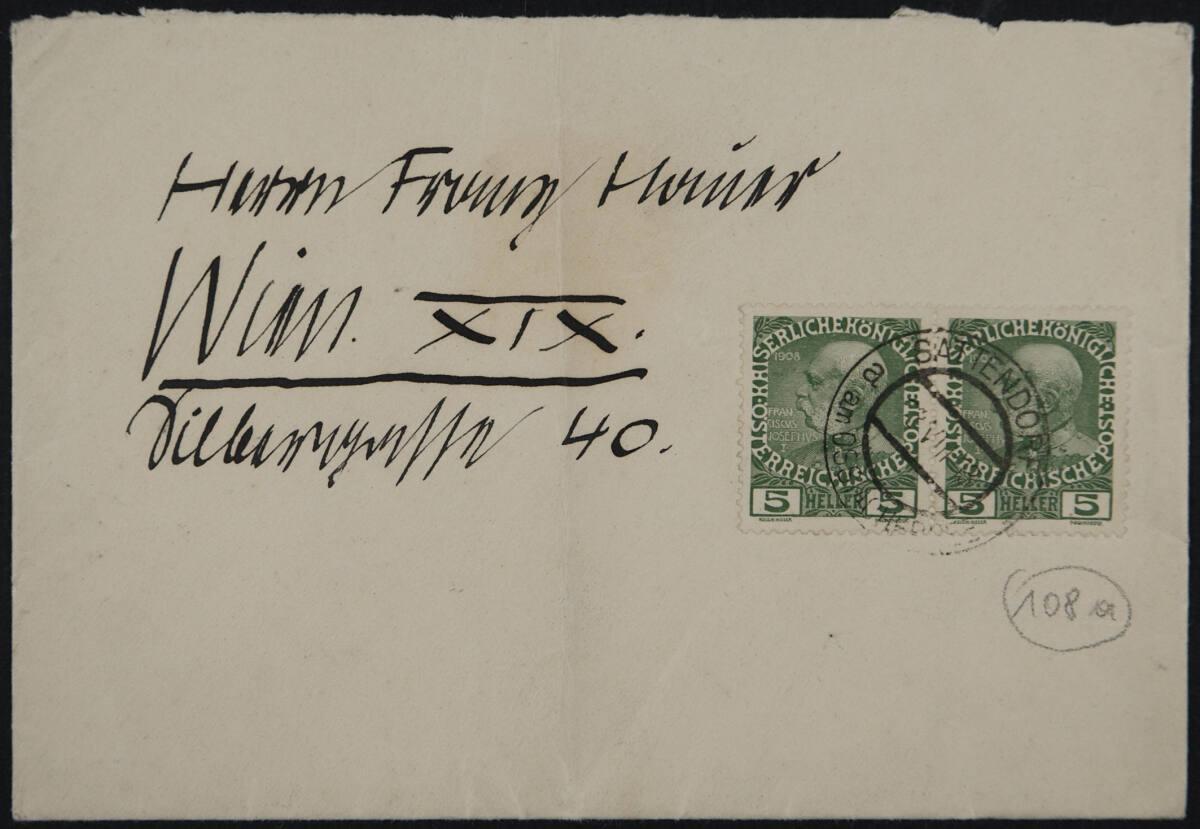 Herrn Franz Hauer
Wien. XIX.
Silbergasse 40.
KAISERLICHE KÖNIGLICHE ÖSTERREICHISCHE POST
1908
FRAN
CISCUS
JOSEPHVS
I
5 HELLER 5
KAISERLICHE KÖNIGLICHE ÖSTERREICHISCHE POST
FRAN
CISCUS
JOSEPHVS
I
5 HELLER 5
SATTENDORF
a
108 a